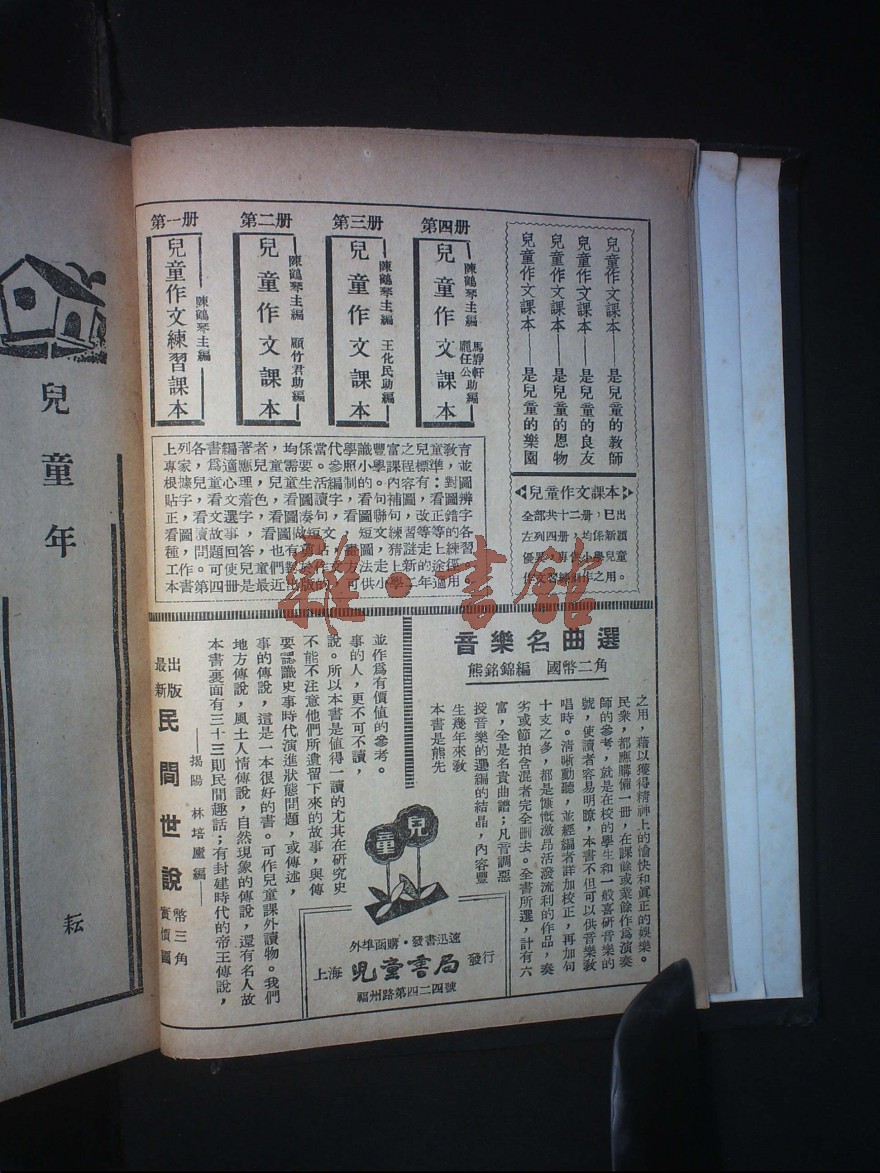 兒童年
耘
兒童作文課本——是兒童的教師
兒童作文課本——是兒童的良友
兒童作文課本——是兒童的恩物
兒童作文課本——是兒童的樂園
兒童作文課本
全部共十二册，已出
左列四册，均係新穎
優異，專供小學兒童
作文習練
作之用。
第四册
陳鶴琴主編
馬靜軒
龐任公助編
兒童作文課本
第三册
陳鶴琴主編 王化民助編
兒童作文課本
第二册
陳鶴琴主編 顧竹君助編
兒童作文課本
第一册
陳鶴琴主編
兒童作文練習課本
上列各書編著者，均係當代學識豐富之兒童教育
專家，爲適應兒童需要。參照小學課程標準，並
根據兒童心理，兒童生活編制的。內容有：對圖
貼字，看文着色，看圖讀字，看句補圖，看圖辨
正，看文選字，看圖湊句，看圖聯句，改正錯字
看圖讀故事，看圖做短文，短文練習等等的各
種，問題回答，也有
短圖，猜謎
上練習
工作。可使兒童們對於作文方法走上新的途徑。
本書第四册是最近出版的，可供小學二年適用。
雜·書館
音樂名曲選
熊銘錦編 國幣二角
本書是熊先
生幾年來教
授音樂的選編的結晶，內容豐
富，全是名貴曲譜；凡音調惡
劣或節拍含混者完全刪去。全書所選，計有六
十支之多，都是慷慨激昂活發流利的作品，奏
唱時。清晰動聽，並經編者詳加校正，再加句
號，使讀者容易明瞭，本書不但可以供音樂教
師的參考，就是在校的學生和一般喜研音樂的
民衆，都應購備一册，在課餘或業餘作爲演奏
之用，藉以獲得精神上的愉快和眞正的娛樂。
最新出版
民間世說
實價國幣三角
——揭陽 林培廬編——
本書裏面有三十三則民間趣話；有封建時代的帝王傳說，
地方傳說，風土人情傳說，自然現象的傳說，還有名人故
事的傳說，這是一本很好的書。可作兒童課外讀物。我們
要認識史事時代演進狀態問題，或傳述，
不能不注意他們所遺留下來的故事，與傳
說。所以本書是值得一讀的尤其在研究史
事的人，更不可不讀，
並作爲有價值的參考。
兒童
外埠函購·發書迅速
上海 兒童書局 發行
福州路第四二四號